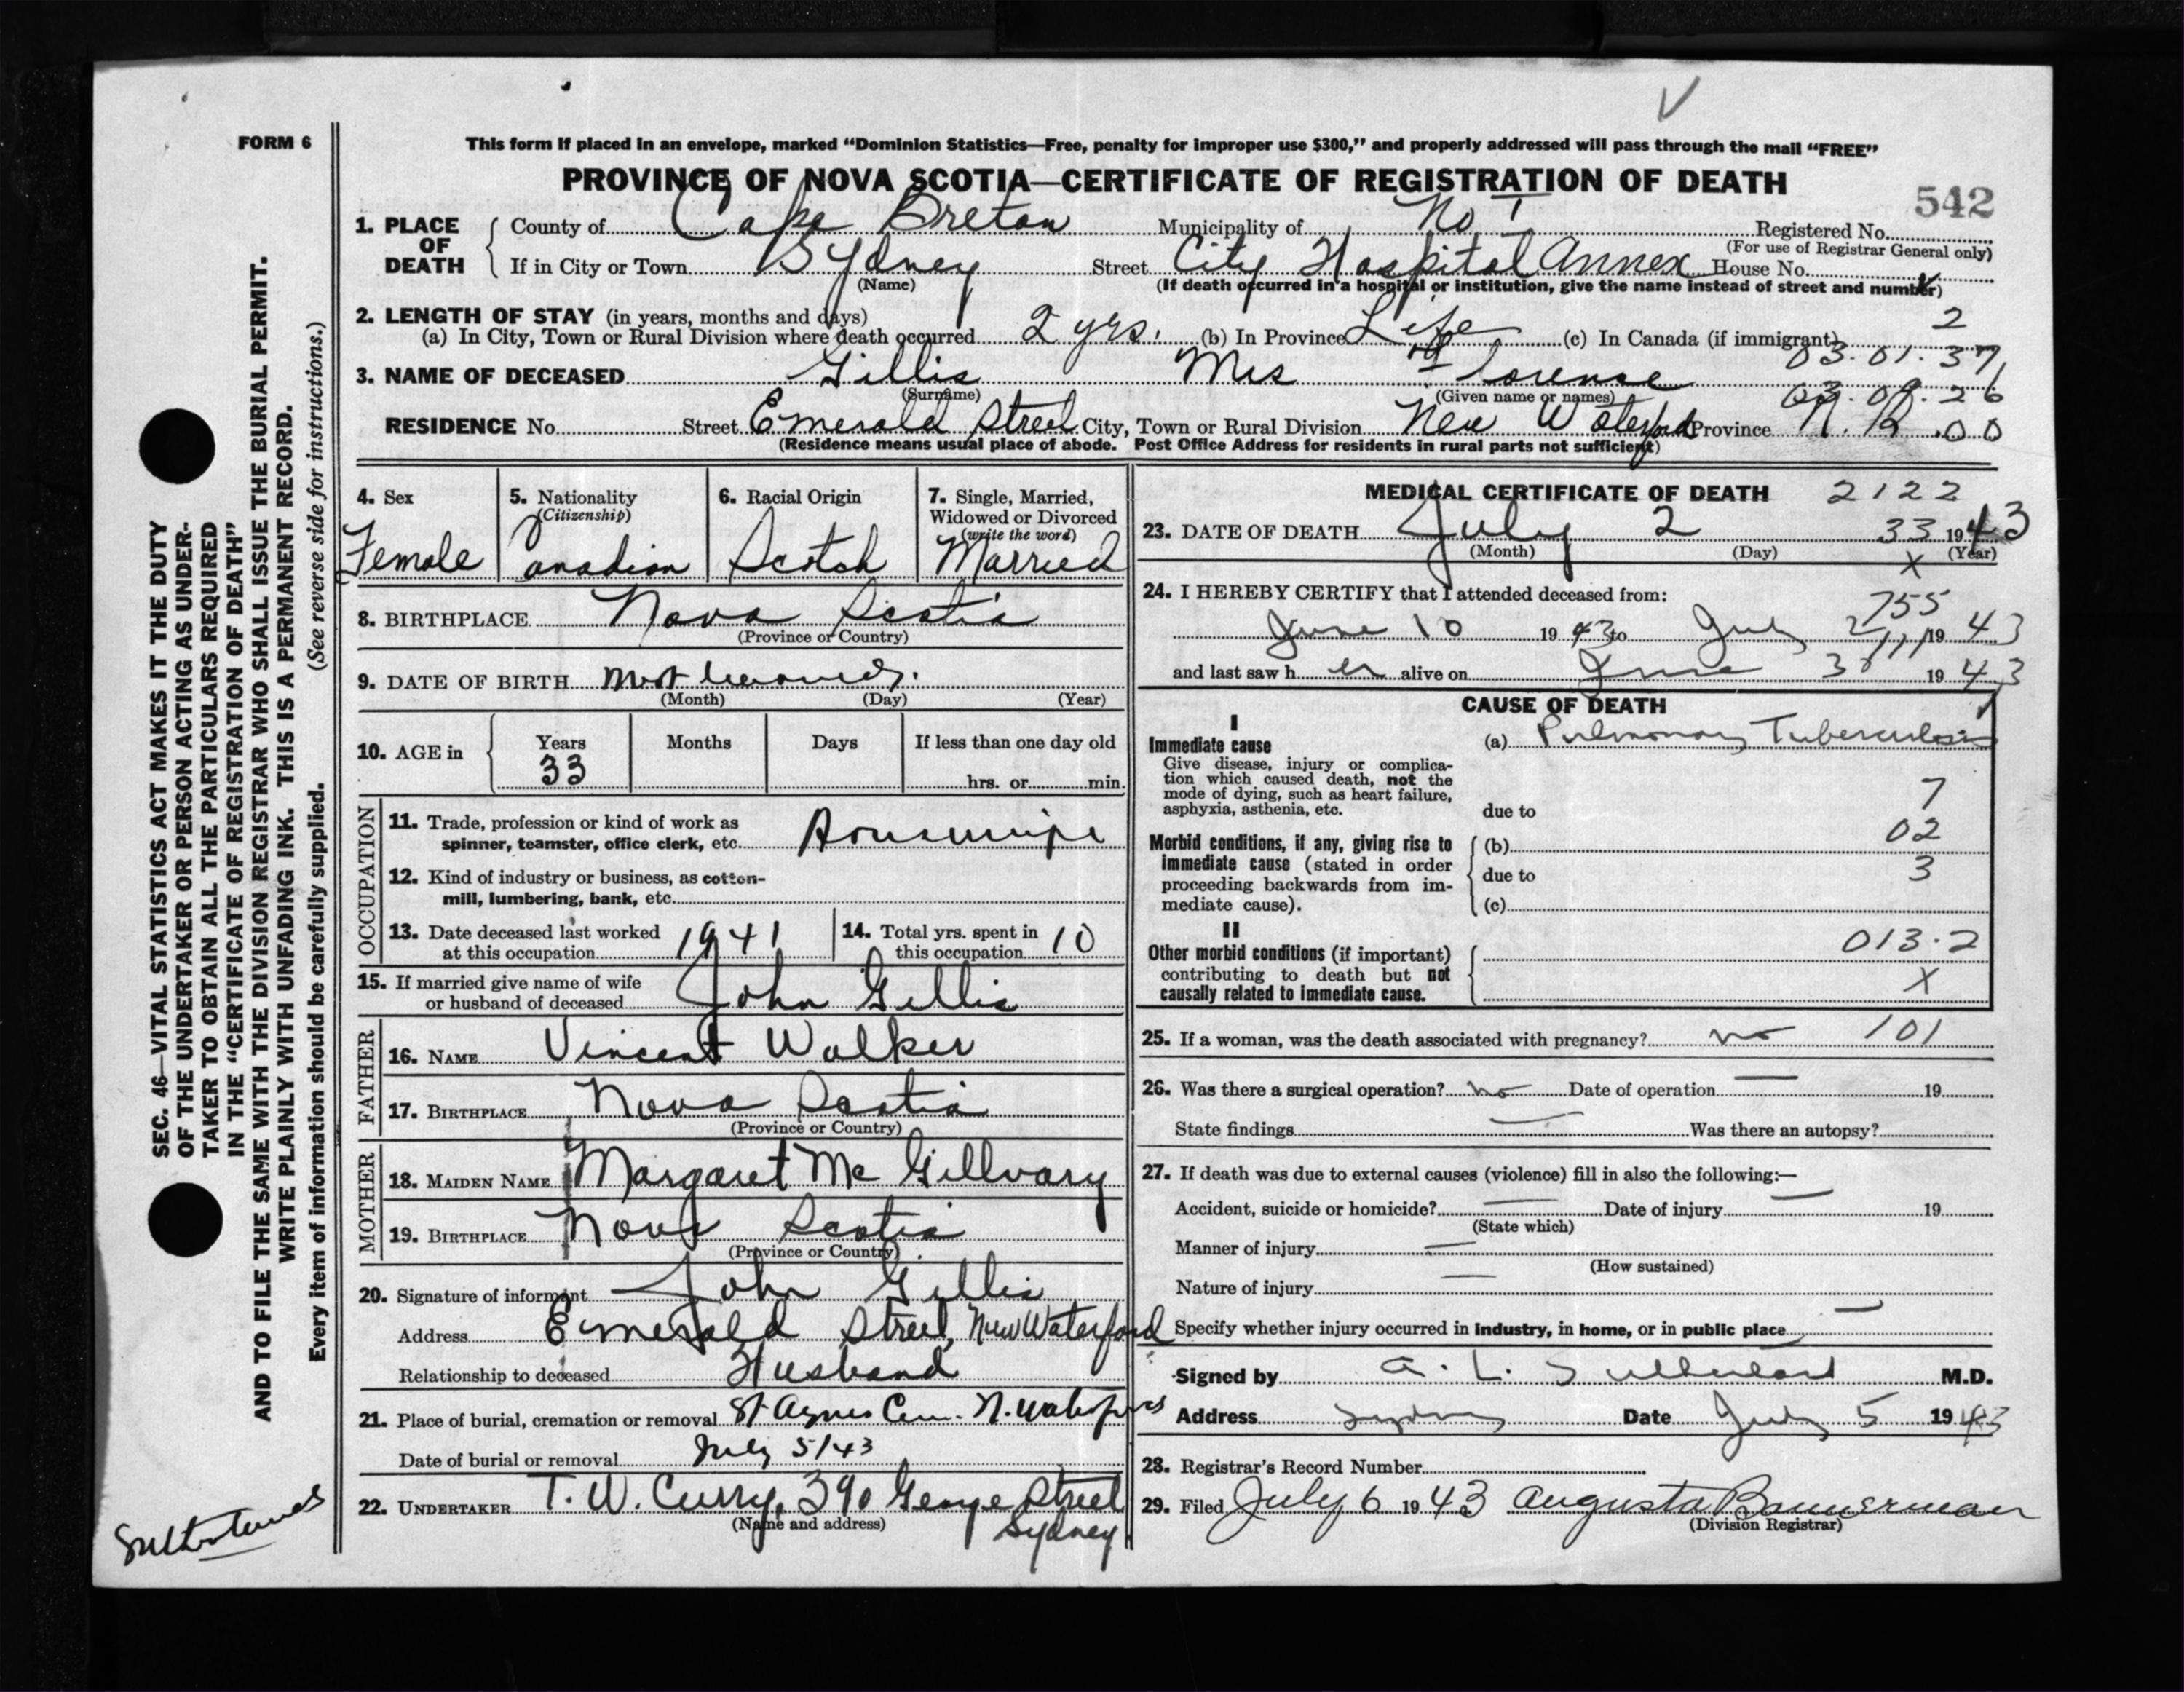 FORM 6
This form if placed in an envelope, marked “Dominion Statistics—Free, penalty for improper use $300,” and properly addressed will pass through the mail “FREE”
PROVINCE OF NOVA SCOTIA—CERTIFICATE OF REGISTRATION OF DEATH
542
1. PLACE OF DEATH
County of Cape Breton Municipality of No 1 Registered No.
(For use of Registrar General only)
If in City or Town Sydney Street City Hospital Annex House No.
(Name) (If death occurred in a hospital or institution, give the name instead of street and number)
2. LENGTH OF STAY (in years, months and days)
(a) In City, Town or Rural Division where death occurred 2 yrs. (b) In Province Life (c) In Canada (if immigrant)
2
03.01.37
3. NAME OF DECEASED Gillis Mrs Florence
(Surname) (Given name or names)
RESIDENCE No. Street Emerald Street City, Town or Rural Division New Waterford Province
.00
(Residence means usual place of abode. Post Office Address for residents in rural parts not sufficient)
4. Sex
Female
5. Nationality
(Citizenship)
Canadian
6. Racial Origin
Scotch
7. Single, Married,
Widowed or Divorced
(write the word)
Married
8. BIRTHPLACE Nova Scotia
(Province or Country)
9. DATE OF BIRTH
(Month) (Day) (Year)
10. AGE in
Years Months Days If less than one day old
33
hrs. or min.
OCCUPATION
11. Trade, profession or kind of work as
spinner, teamster, office clerk, etc. Housewife
12. Kind of industry or business, as cotton-
mill, lumbering, bank, etc.
13. Date deceased last worked
at this occupation 1941
14. Total yrs. spent in
this occupation 10
15. If married give name of wife
or husband of deceased John Gillis
FATHER
16. NAME Vincent Walker
17. BIRTHPLACE Nova Scotia
(Province or Country)
MOTHER
18. MAIDEN NAME Margaret Mc Gillvary
19. BIRTHPLACE Nova Scotia
(Province or Country)
20. Signature of informant John Gillis
Address Emerald Street, New Waterford
Relationship to deceased Husband
21. Place of burial, cremation or removal St Agnes Cem. N. Waterford
Date of burial or removal July 5/43
22. UNDERTAKER T. W. Curry, 390 George Street
(Name and address) Sydney
MEDICAL CERTIFICATE OF DEATH 2122
23. DATE OF DEATH July 2 33 1943
(Month) (Day) (Year)
X
24. I HEREBY CERTIFY that I attended deceased from:
755
June 10 1943 to July 2 1943
and last saw her alive on June 30 1943
CAUSE OF DEATH
I
Immediate cause
Give disease, injury or complica-
tion which caused death, not the
mode of dying, such as heart failure,
asphyxia, asthenia, etc.
(a) Pulmonary Tuberculosis
7
due to
02
Morbid conditions, if any, giving rise to
immediate cause (stated in order
proceeding backwards from im-
mediate cause).
(b)
due to
3
(c)
II
Other morbid conditions (if important)
contributing to death but not
causally related to immediate cause.
013.2
X
25. If a woman, was the death associated with pregnancy? no 101
26. Was there a surgical operation? no Date of operation — 19
State findings — Was there an autopsy?
27. If death was due to external causes (violence) fill in also the following:—
Accident, suicide or homicide? — Date of injury — 19
(State which)
Manner of injury —
(How sustained)
Nature of injury —
Specify whether injury occurred in industry, in home, or in public place —
Signed by A. L. Sutherland M.D.
Address Sydney Date July 5 1943
28. Registrar's Record Number
29. Filed July 6 1943 Augusta Bannerman
(Division Registrar)
SEC. 46—VITAL STATISTICS ACT MAKES IT THE DUTY
OF THE UNDERTAKER OR PERSON ACTING AS UNDER-
TAKER TO OBTAIN ALL THE PARTICULARS REQUIRED
IN THE “CERTIFICATE OF REGISTRATION OF DEATH”
AND TO FILE THE SAME WITH THE DIVISION REGISTRAR WHO SHALL ISSUE THE BURIAL PERMIT.
WRITE PLAINLY WITH UNFADING INK. THIS IS A PERMANENT RECORD.
Every item of information should be carefully supplied. (See reverse side for instructions.)